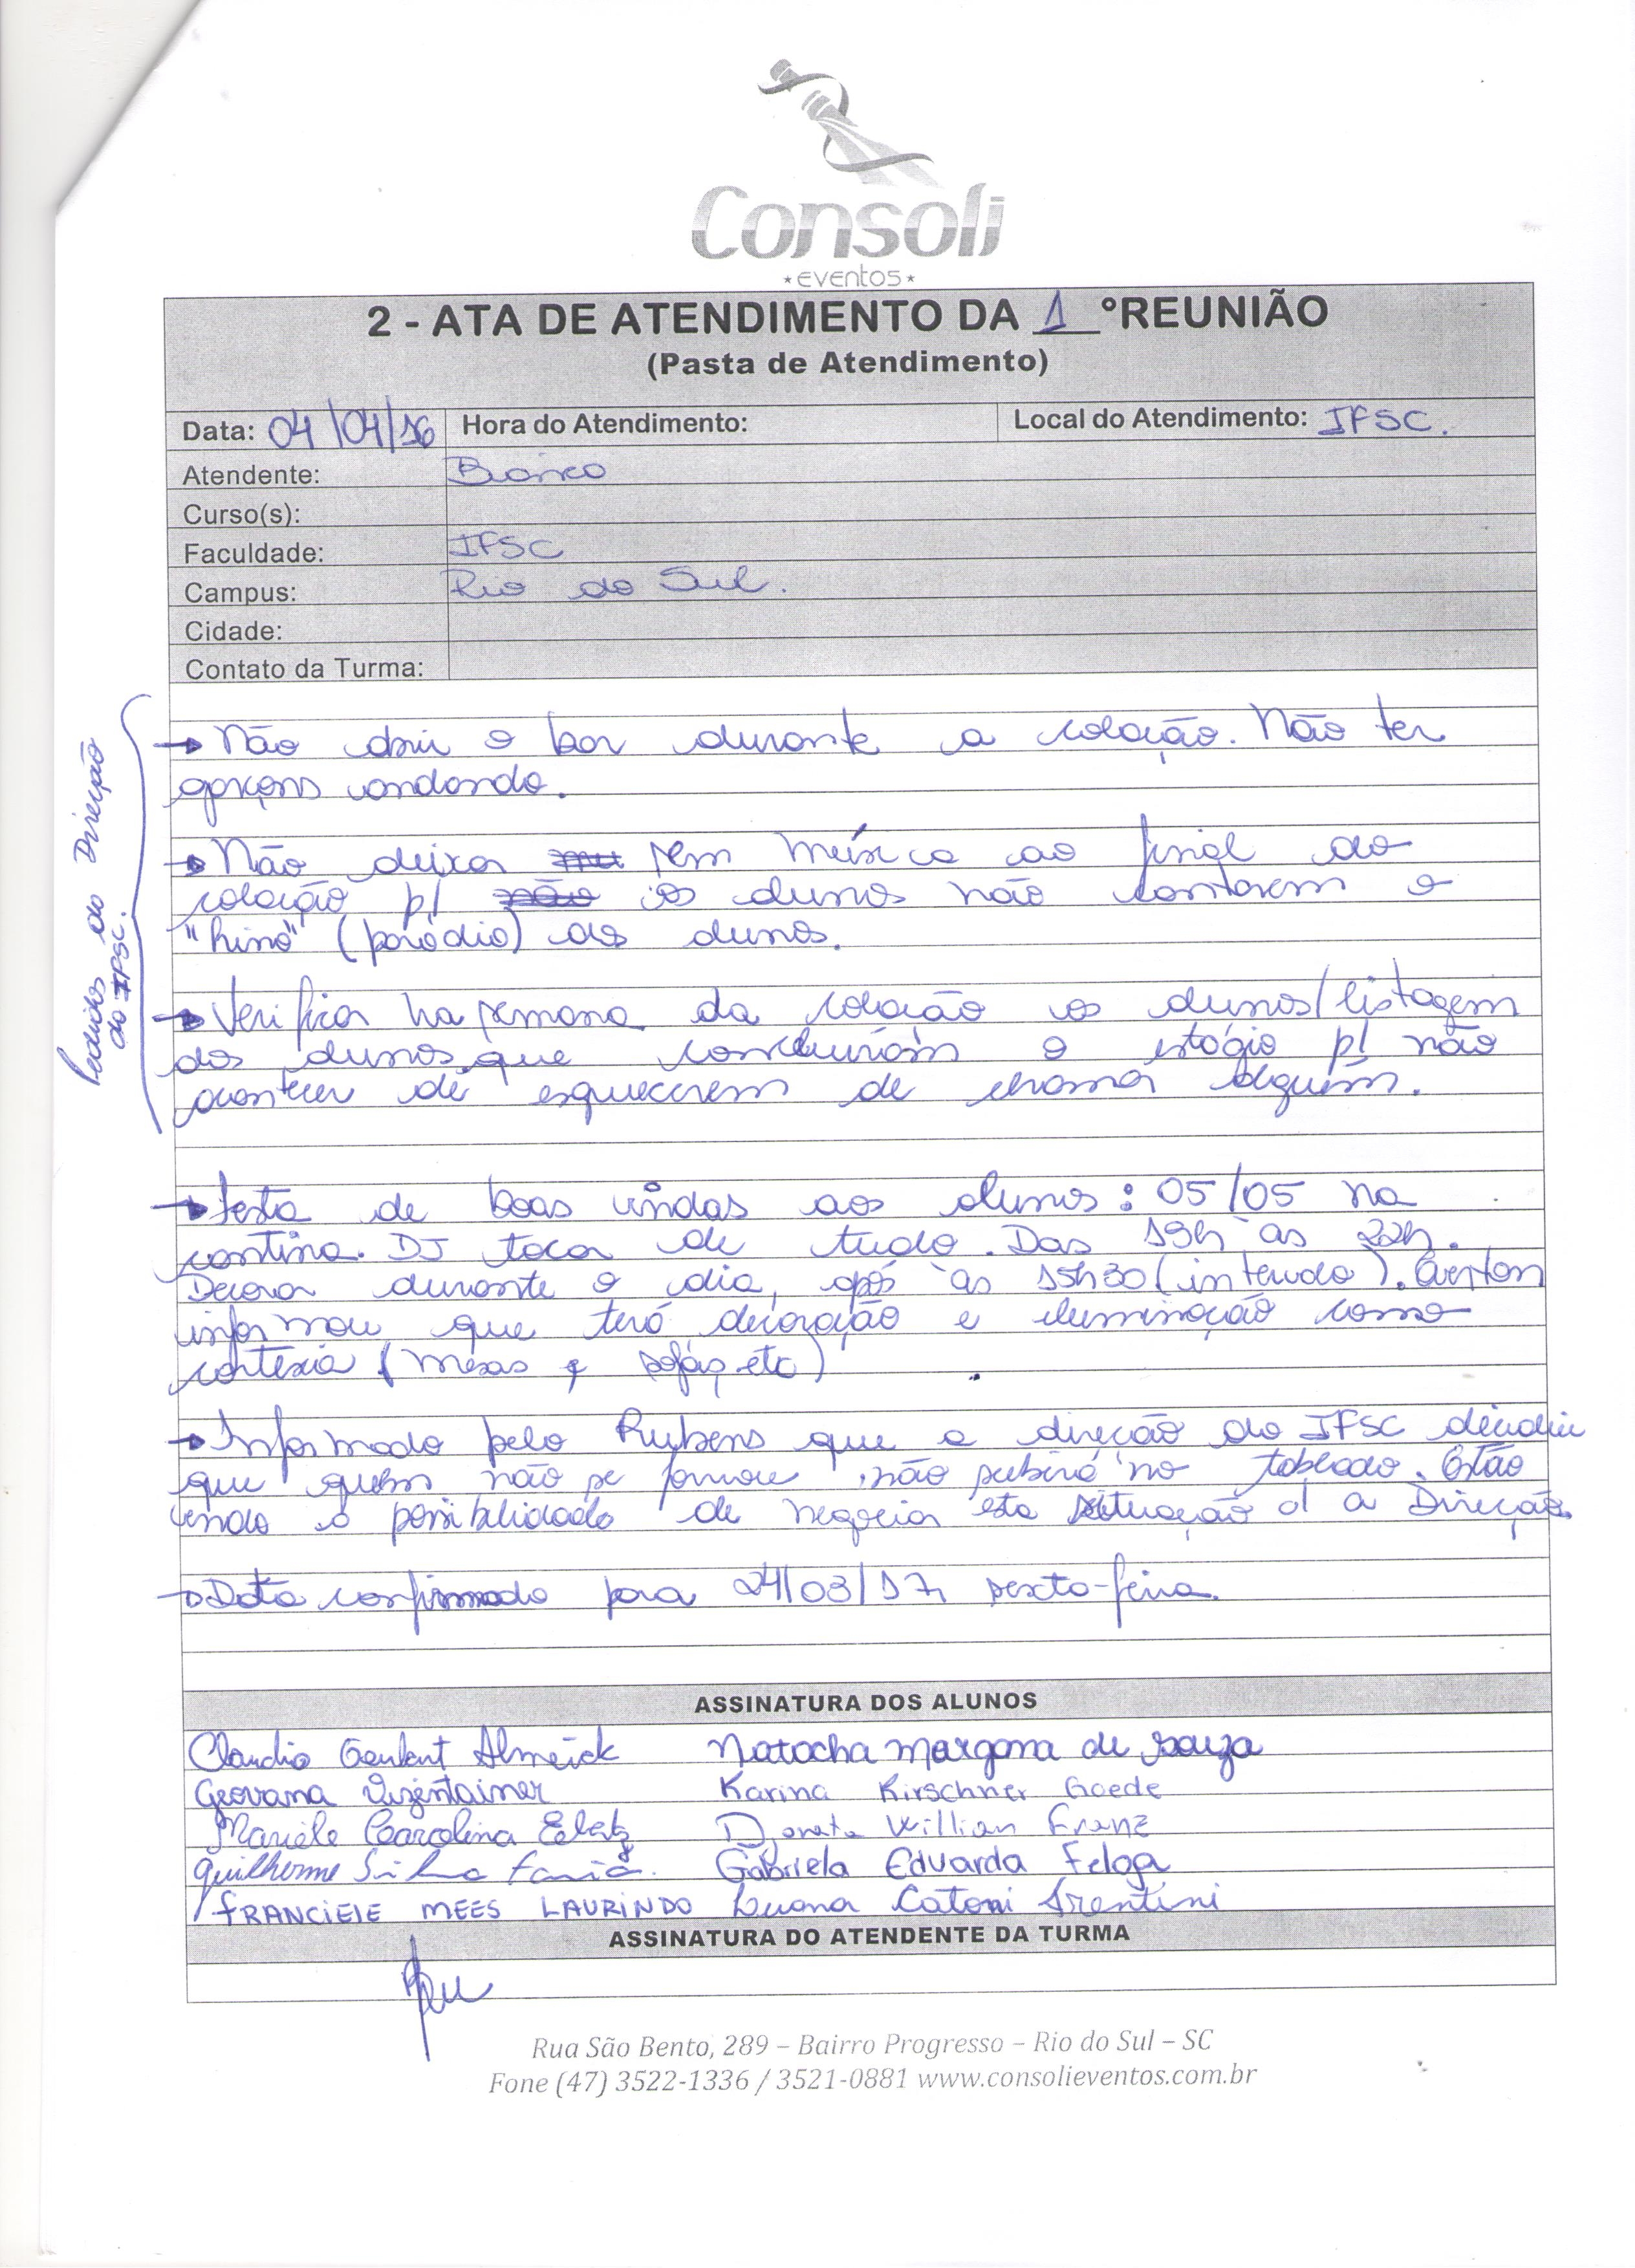 Consoli
* eventos *
2 - ATA DE ATENDIMENTO DA 1 °REUNIÃO
(Pasta de Atendimento)
Data: 04/04/16 Hora do Atendimento: Local do Atendimento: IFSC.
Atendente: Bianca
Curso(s):
Faculdade: IFSC
Campus: Rio do Sul.
Cidade:
Contato da Turma:
Pedidos da Direção
do IFSC.
→ Não abrir o bar durante a colação. Não ter
garçons andando.
→ Não deixar sem música ao final da
colação p/ os alunos não cantarem o
"hino" (paródia) dos alunos.
→ Verificar na semana da colação os alunos/listagem
dos alunos que concluíram o estágio p/ não
acontecer de esquecerem de chamar alguém.
→ Festa de boas vindas aos alunos: 05/05 na
cantina. DJ toca de tudo. Das 19h às 22h.
Decorar durante o dia, após às 15h30 (intervalo). Everton
informou que terá decoração e iluminação como
cortesia (mesas, sofás, etc)
→ Informado pelo Rubens que a direção do IFSC decidiu
que quem não se formou, não subirá no tablado. Estão
vendo a possibilidade de negociar esta situação c/ a Direção.
→ Data confirmada para 24/03/17, sexta-feira.
ASSINATURA DOS ALUNOS
Claudio Almeida Natacha Margona de Souza
Geovana Vizentainer Karina Kirschner Goede
Mariele Carolina Donata Willian Franz
Guilherme Silva Faria. Gabriela Eduarda Felga
FRANCIELE MEES LAURINDO Luana Catoni Arentini
ASSINATURA DO ATENDENTE DA TURMA
Rua São Bento, 289 – Bairro Progresso – Rio do Sul – SC
Fone (47) 3522-1336 / 3521-0881 www.consolieventos.com.br